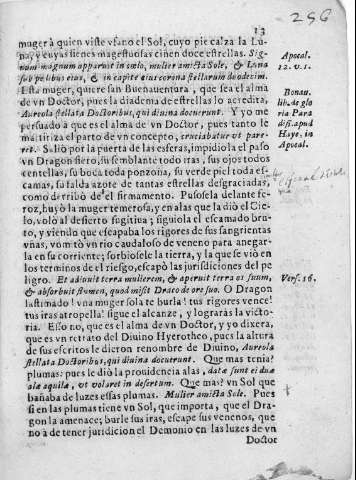 13
256
muger à quien viste vfano el Sol, cuyo pie calza la Lu-
na, y cuyas sienes magestuosas ciñen doce estrellas. Sig-
num magnum apparuit in cœlo, mulier amicta Sole, & Luna
sub pedibus eius, & in capite eius corona stellarum duodecim.
Esta muger, quiere san Buenauentura, que sea el alma
de vn Doctor, pues la diadema de estrellas lo acredita,
Aureola stellata Doctoribus, qui diuina docuerunt. Y yo me
persuado à que es el alma de vn Doctor, pues tanto le
martiriza el parto de vn concepto, cruciabatur vt pare-
ret. Saliò por la puerta de las esferas, impidiola el paso
vn Dragon fiero, su semblante todo iras, sus ojos todos
centellas, su boca toda ponzoña, su verde piel toda es-
camas, su falda azote de tantas estrellas desgraciadas,
como derribò de el firmamento. Pusosela delante fe-
roz, huyò la muger temerosa, y en alas que la diò el Cie-
lo, volò al desierto fugitiua; siguiola el escamado bru-
to, y viendo que escapaba los rigores de sus sangrientas
vñas, vomitò vn rio caudaloso de veneno para anegar-
la en su corriente; sorbiosele la tierra, y la que se viò en
los terminos de el riesgo, escapò las jurisdiciones del pe-
ligro. Et adiuuit terra mulierem, & aperuit terra os suum,
& absorbuit flumen, quod misit Draco de ore suo. O Dragon
lastimado! vna muger sola te burla! tus rigores vence!
tus iras atropella! sigue el alcanze, y lograràs la victo-
ria. Esso no, que es el alma de vn Doctor, y yo dixera,
que es vn retrato del Diuino Hyerotheo, pues la altura
de sus escritos le dieron renombre de Diuino, Aureola
stellata Doctoribus, qui diuina docuerunt. Que mas tenia?
plumas: pues le diò la prouidencia alas, datæ sunt ei duæ
alæ aquilæ, vt volaret in desertum. Que mas? vn Sol que
bañaba de luzes essas plumas. Mulier amicta Sole. Pues
si en las plumas tiene vn Sol, que importa, que el Dra-
gon la amenace; burle sus iras, escape sus venenos, que
no à de tener juridicion el Demonio en las luzes de vn
Doctor
Apocal.
12. v. 1.
Bonau.
lib. de glo
ria Para
disi. apud
Haye, in
Apocal.
Vers. 16.